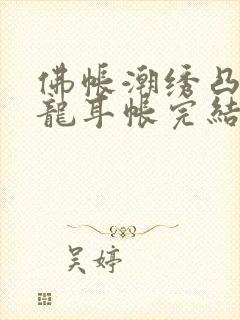 佛帐潮绣凸
龍耳帐完結
吴婷